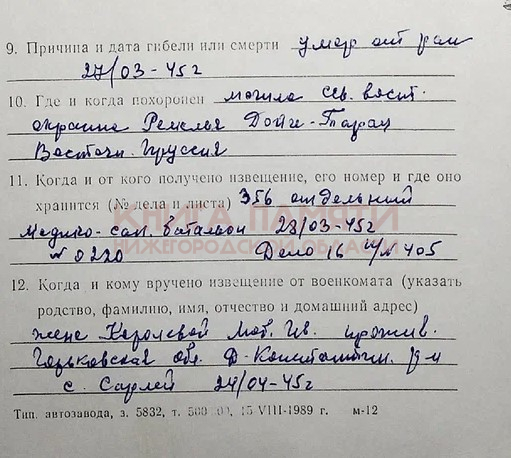 9. Причина и дата гибели или смерти умер от ран
27/03-45г
10. Где и когда похоронен могила сев. вост.
окраина Дойч-Тарау
Восточн. Пруссия
11. Когда и от кого получено извещение, его номер и где оно
хранится (№ дела и листа) 356 отдельний
Медико-сан. батальон 28/03-45г
КНИГА ПАМЯТИ
НИЖЕГОРОДСКОЙ ОБЛАСТИ
№ 0220 Дело 16 405
12. Когда и кому вручено извещение от военкомата (указать
родство, фамилию, имя, отчество и домашний адрес)
жене Королевой Ив. прожив.
Горьковская обл. Д-Константин. р-н
с. Сарлей 24/04-45г
Тип. автозавода, з. 5832, т. 15 VIII-1989 г. м-12